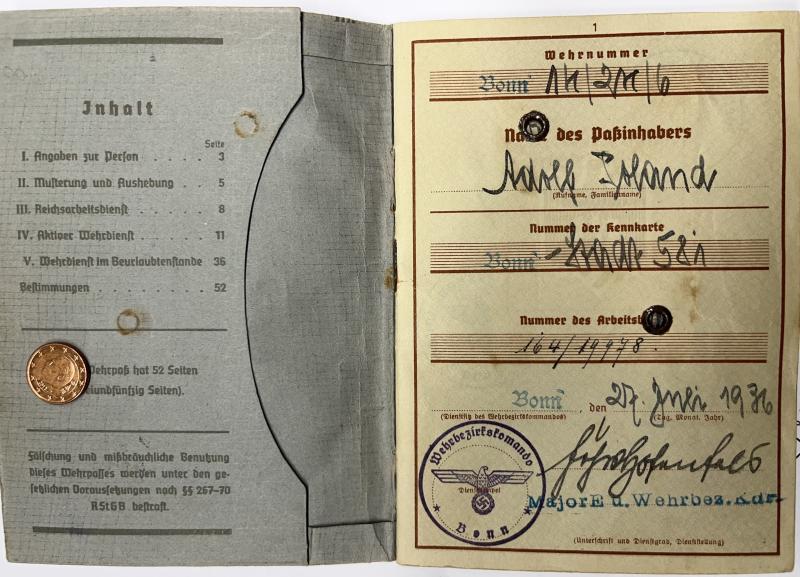 Inhalt
Seite
I. Angaben zur Person . . . . . 3
II. Musterung und Aushebung . . . 5
III. Reichsarbeitsdienst . . . . . . 8
IV. Aktiver Wehrdienst . . . . . . 11
V. Wehrdienst im Beurlaubtenstande 36
Bestimmungen . . . . . . . . 52
Wehrpaß hat 52 Seiten
Fälschung und mißbräuchliche Benutzung
dieses Wehrpasses werden unter den ge-
setzlichen Voraussetzungen nach §§ 267-70
RStGB bestraft.
1
Wehrnummer
Bonn
des Paßinhabers
Adolf
(Rufname, Familienname)
Nummer der Kennkarte
Bonn
Nummer des
164/19978.
Bonn, den 27. 1936
(Dienstsitz des Wehrbezirkskommandos) (Tag, Monat, Jahr)
Wehrbezirkskomando
Dienststempel
Bonn
Major E u. Wehrbez. Kdr.
(Unterschrift und Dienstgrad, Dienststellung)